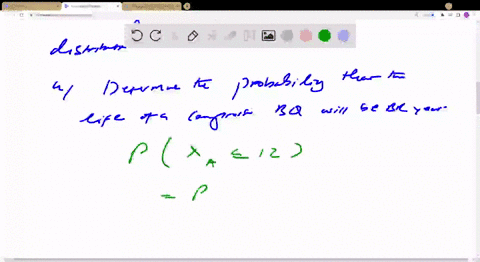 a) Determine the probability that the
life of a component BQ will be BR year
P ( X_A ≤ 12 )
= P